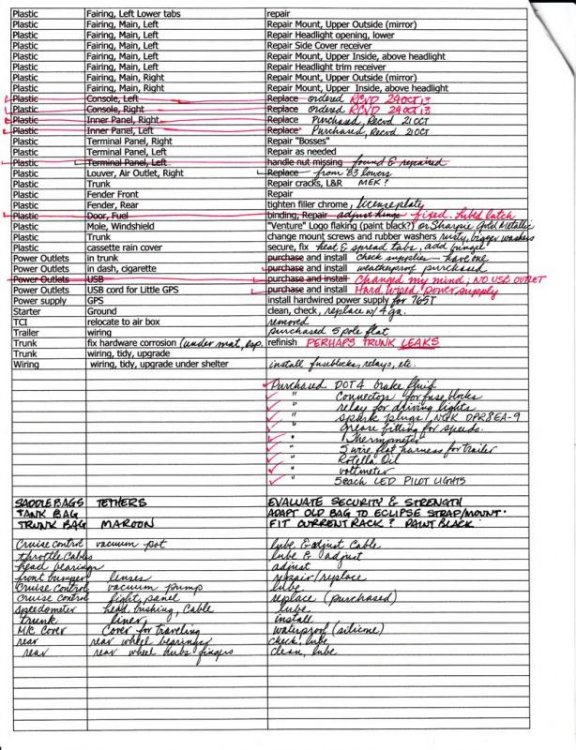 Plastic Fairing, Left Lower tabs repair
Plastic Fairing, Main, Left Repair Mount, Upper Outside (mirror)
Plastic Fairing, Main, Left Repair Headlight opening, lower
Plastic Fairing, Main, Left Repair Side Cover receiver
Plastic Fairing, Main, Left Repair Mount, Upper Inside, above headlight
Plastic Fairing, Main, Left Repair Headlight trim receiver
Plastic Fairing, Main, Right Repair Mount, Upper Outside (mirror)
Plastic Fairing, Main, Right Repair Mount, Upper Inside, above headlight
Plastic Console, Left Replace ordered RCVD 24 OCT 13
Plastic Console, Right Replace ordered RCVD 24 OCT 13
Plastic Inner Panel, Right Replace Purchased, Recvd 21 OCT
Plastic Inner Panel, Left Replace Purchased, Recvd 21 OCT
Plastic Terminal Panel, Right Repair "Bosses"
Plastic Terminal Panel, Left Repair as needed
Plastic Terminal Panel, Left handle nut missing found & repaired
Plastic Louver, Air Outlet, Right Replace from '83 lowers
Plastic Trunk Repair cracks, L&R MEK?
Plastic Fender Front Repair
Plastic Fender, Rear tighten filler chrome, license plate
Plastic Door, Fuel binding, Repair adjust hinge fixed. Lubed latch
Plastic Mole, Windshield "Venture" Logo flaking (paint black?) or Sharpie Gold Metallic
Plastic Trunk change mount screws and rubber washers rusty, bigger washers
Plastic cassette rain cover secure, fix heat & spread tabs, add bungel
Power Outlets in trunk purchase and install check supplies - have one
Power Outlets in dash, cigarette purchase and install weatherproof purchased
Power Outlets USB purchase and install Changed my mind, NO USB OUTLET
Power Outlets USB cord for Little GPS purchase and install Hard wired power supply
Power supply GPS install hardwired power supply for 765T
Starter Ground clean, check, replace w/ 4 ga.
TCI relocate to air box removed
Trailer wiring purchased 5 pole flat
Trunk fix hardware corrosion (under mat, esp. refinish PERHAPS TRUNK LEAKS
Trunk wiring, tidy, upgrade
Wiring wiring, tidy, upgrade under shelter install fuseblocks, relays, etc.
Purchased DOT4 brake fluid
" Connectors for fuse blocks
" relay for driving lights
" spark plugs, NGK DPR8EA-9
" Grease fitting for speedo.
" Thermometer
" 5 wire flat harness for trailer
" Rotella Oil
" voltmeter
" 5 each LED PILOT LIGHTS
SADDLEBAGS TETHERS EVALUATE SECURITY & STRENGTH
TANK BAG ADAPT OLD BAG TO ECLIPSE STRAP/MOUNT.
TRUNK BAG MAROON FIT CURRENT RACK? PAINT BLACK
Cruise Control vacuum pot lube & adjust Cable
throttle Cables lube & adjust
head bearings adjust
front bumper lenses repair/replace
Cruise Control vacuum pump lube
Cruise Control light, panel replace (purchased)
speedometer head, bushing, Cable lube
trunk liner install
M/C Cover Cover for traveling waterproof (silicone)
rear rear wheel bearings check, lube
rear rear wheel hubs fingers clean, lube